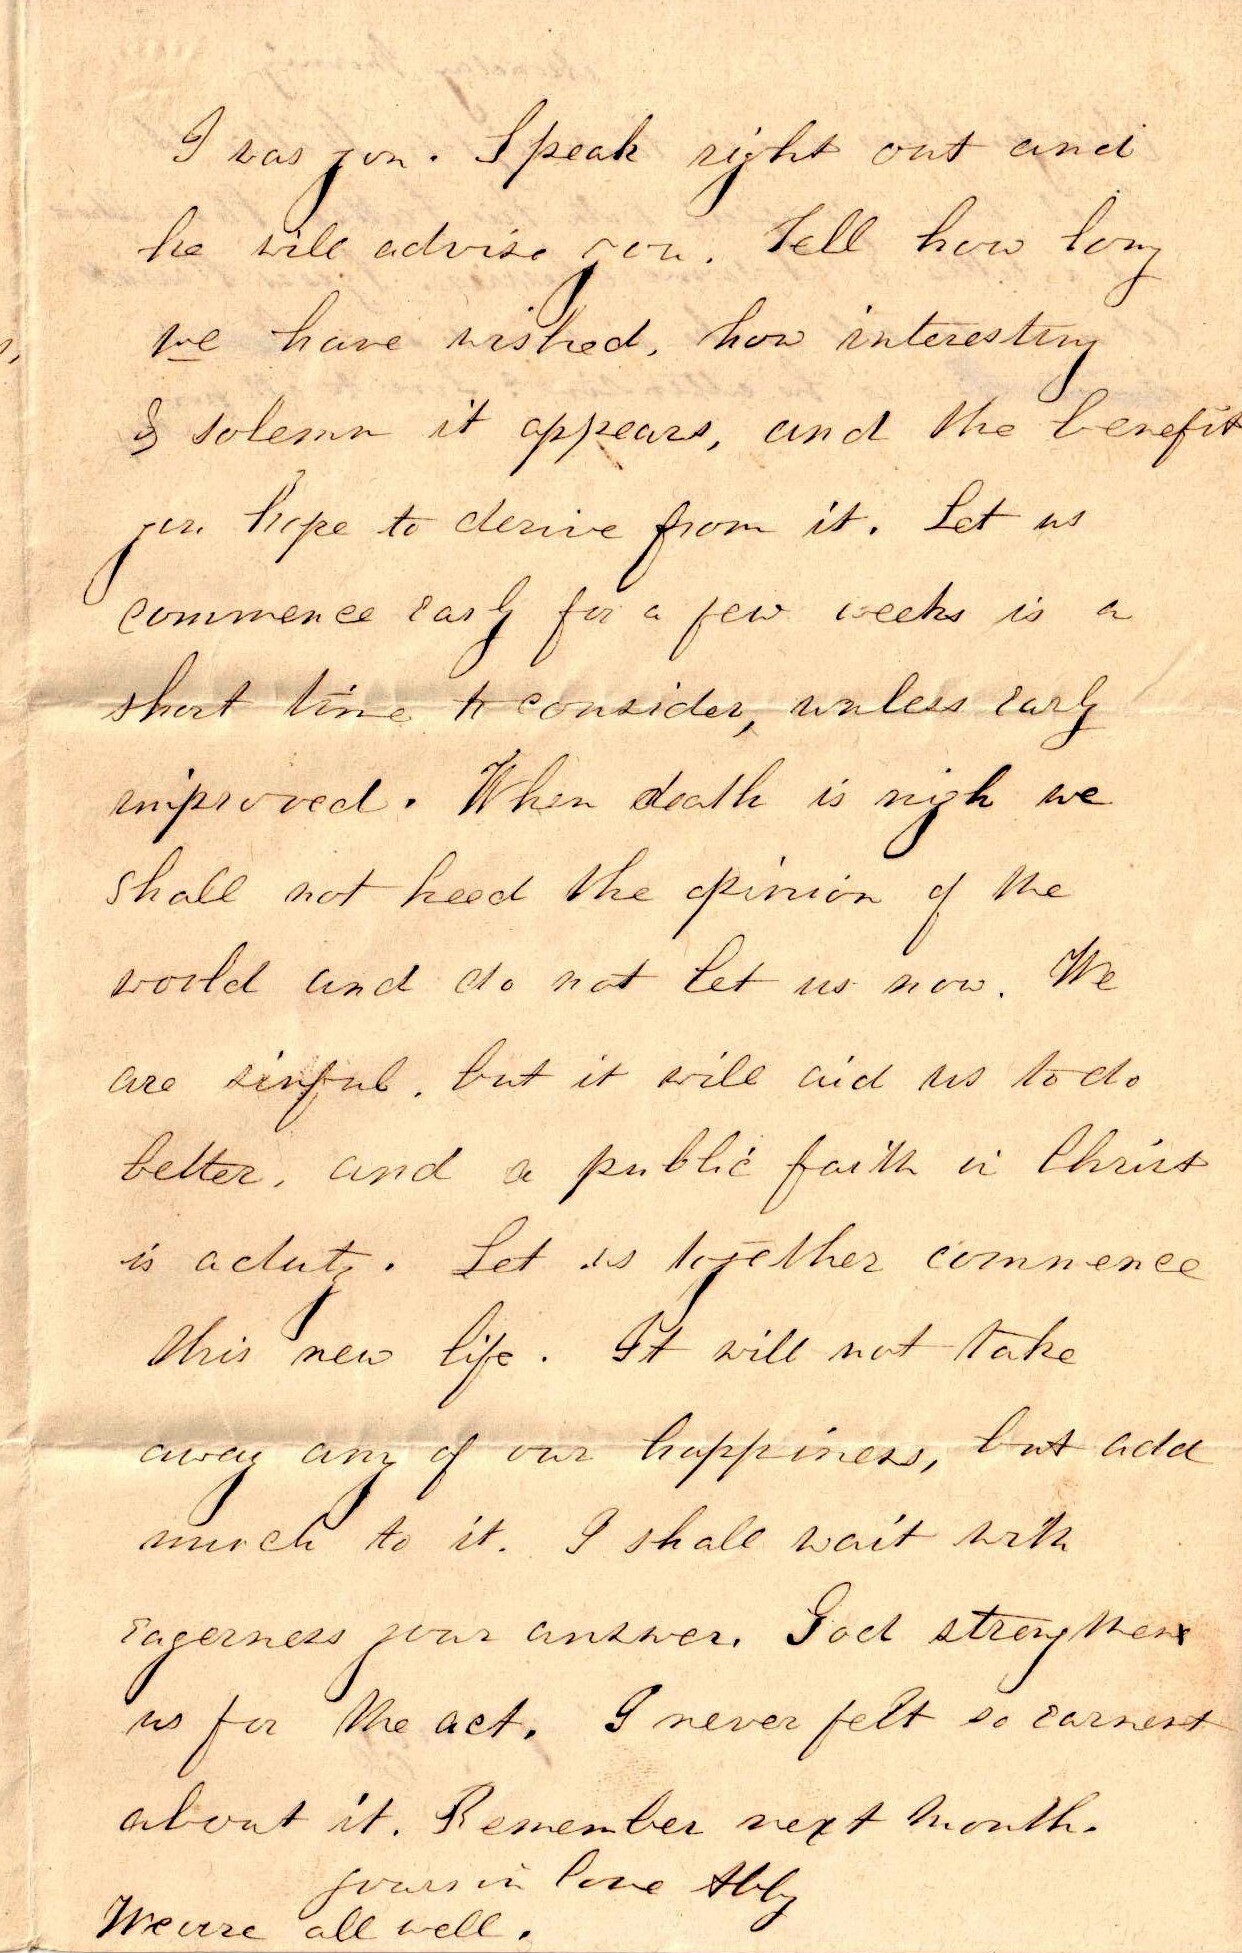 I was you. Speak right out and
he will advise you. Tell how long
we have wished, how interesting
& solemn it appears, and the benefit
you hope to derive from it. Let us
commence early for a few weeks is a
short time to consider, unless early
improved. When death is nigh we
shall not heed the opinion of the
world and do not let us now. We
are sinful, but it will aid us to do
better, and a public faith in Christ
is a duty. Let us together commence
this new life. It will not take
away any of our happiness, but add
much to it. I shall wait with
eagerness your answer. God strengthen
us for the act. I never felt so earnest
about it. Remember next month.
yours in love Abby
We are all well.